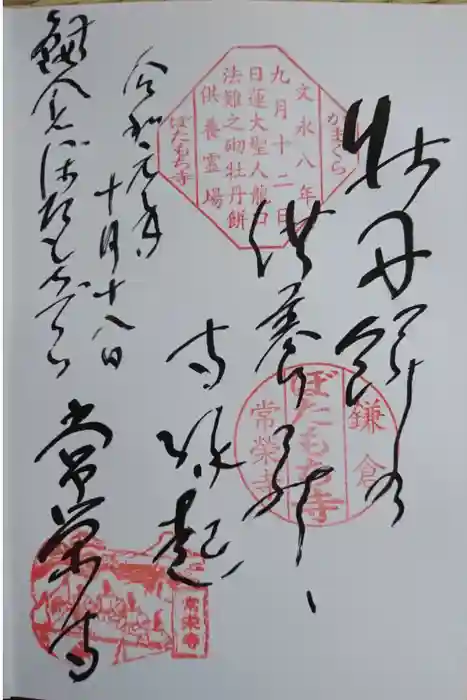 牡丹餅の
供養
寺縁起
令和元年
十月十八日
鎌倉ぼたもちでら
常栄寺
かまくら
文永八年
九月十二日
日蓮大聖人龍口
法難之砌牡丹餅
供養霊場
ぼたもち寺
鎌倉
ぼたもち寺
常榮寺
常栄寺